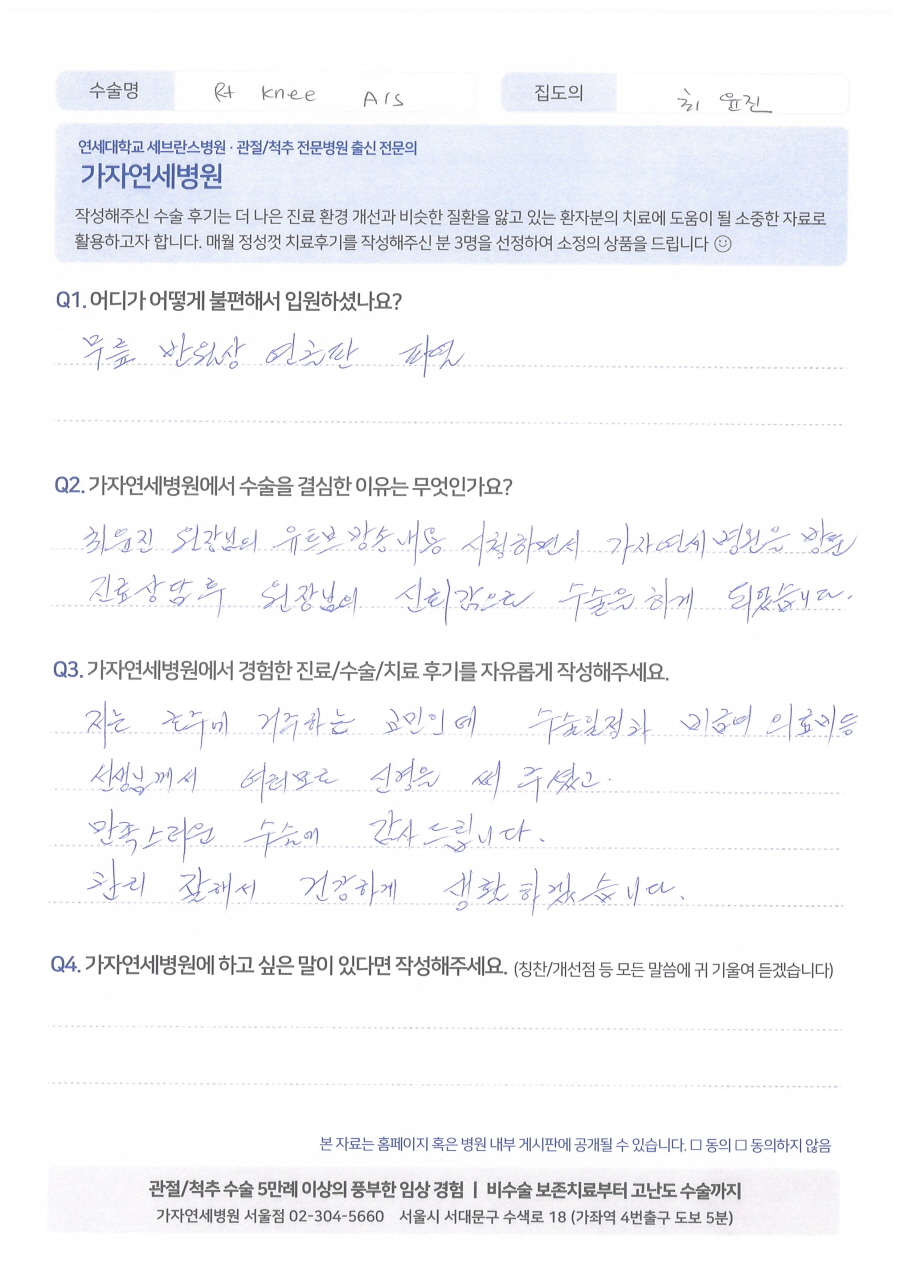 수술명 Rt knee A/S 집도의 최윤진
연세대학교 세브란스병원 · 관절/척추 전문병원 출신 전문의
가자연세병원
작성해주신 수술 후기는 더 나은 진료 환경 개선과 비슷한 질환을 앓고 있는 환자분의 치료에 도움이 될 소중한 자료로
활용하고자 합니다. 매월 정성껏 치료후기를 작성해주신 분 3명을 선정하여 소정의 상품을 드립니다 ☺
Q1. 어디가 어떻게 불편해서 입원하셨나요?
무릎 반월상 연골판 파열
Q2. 가자연세병원에서 수술을 결심한 이유는 무엇인가요?
최윤진 원장님의 유튜브 방송내용 시청하면서 가자연세병원을 방문
진료상담후 원장님의 신뢰감으로 수술을 하게 되었습니다.
Q3. 가자연세병원에서 경험한 진료/수술/치료 후기를 자유롭게 작성해주세요.
저는 거주하는 교민인데 수술일정과 비급여 의료비등
선생님께서 여러모로 신경을 써 주셨고.
만족스러운 수술에 감사드립니다.
관리 잘해서 건강하게 생활하겠습니다.
Q4. 가자연세병원에 하고 싶은 말이 있다면 작성해주세요. (칭찬/개선점 등 모든 말씀에 귀 기울여 듣겠습니다)
본 자료는 홈페이지 혹은 병원 내부 게시판에 공개될 수 있습니다. □ 동의 □ 동의하지 않음
관절/척추 수술 5만례 이상의 풍부한 임상 경험 | 비수술 보존치료부터 고난도 수술까지
가자연세병원 서울점 02-304-5660 서울시 서대문구 수색로 18 (가좌역 4번출구 도보 5분)